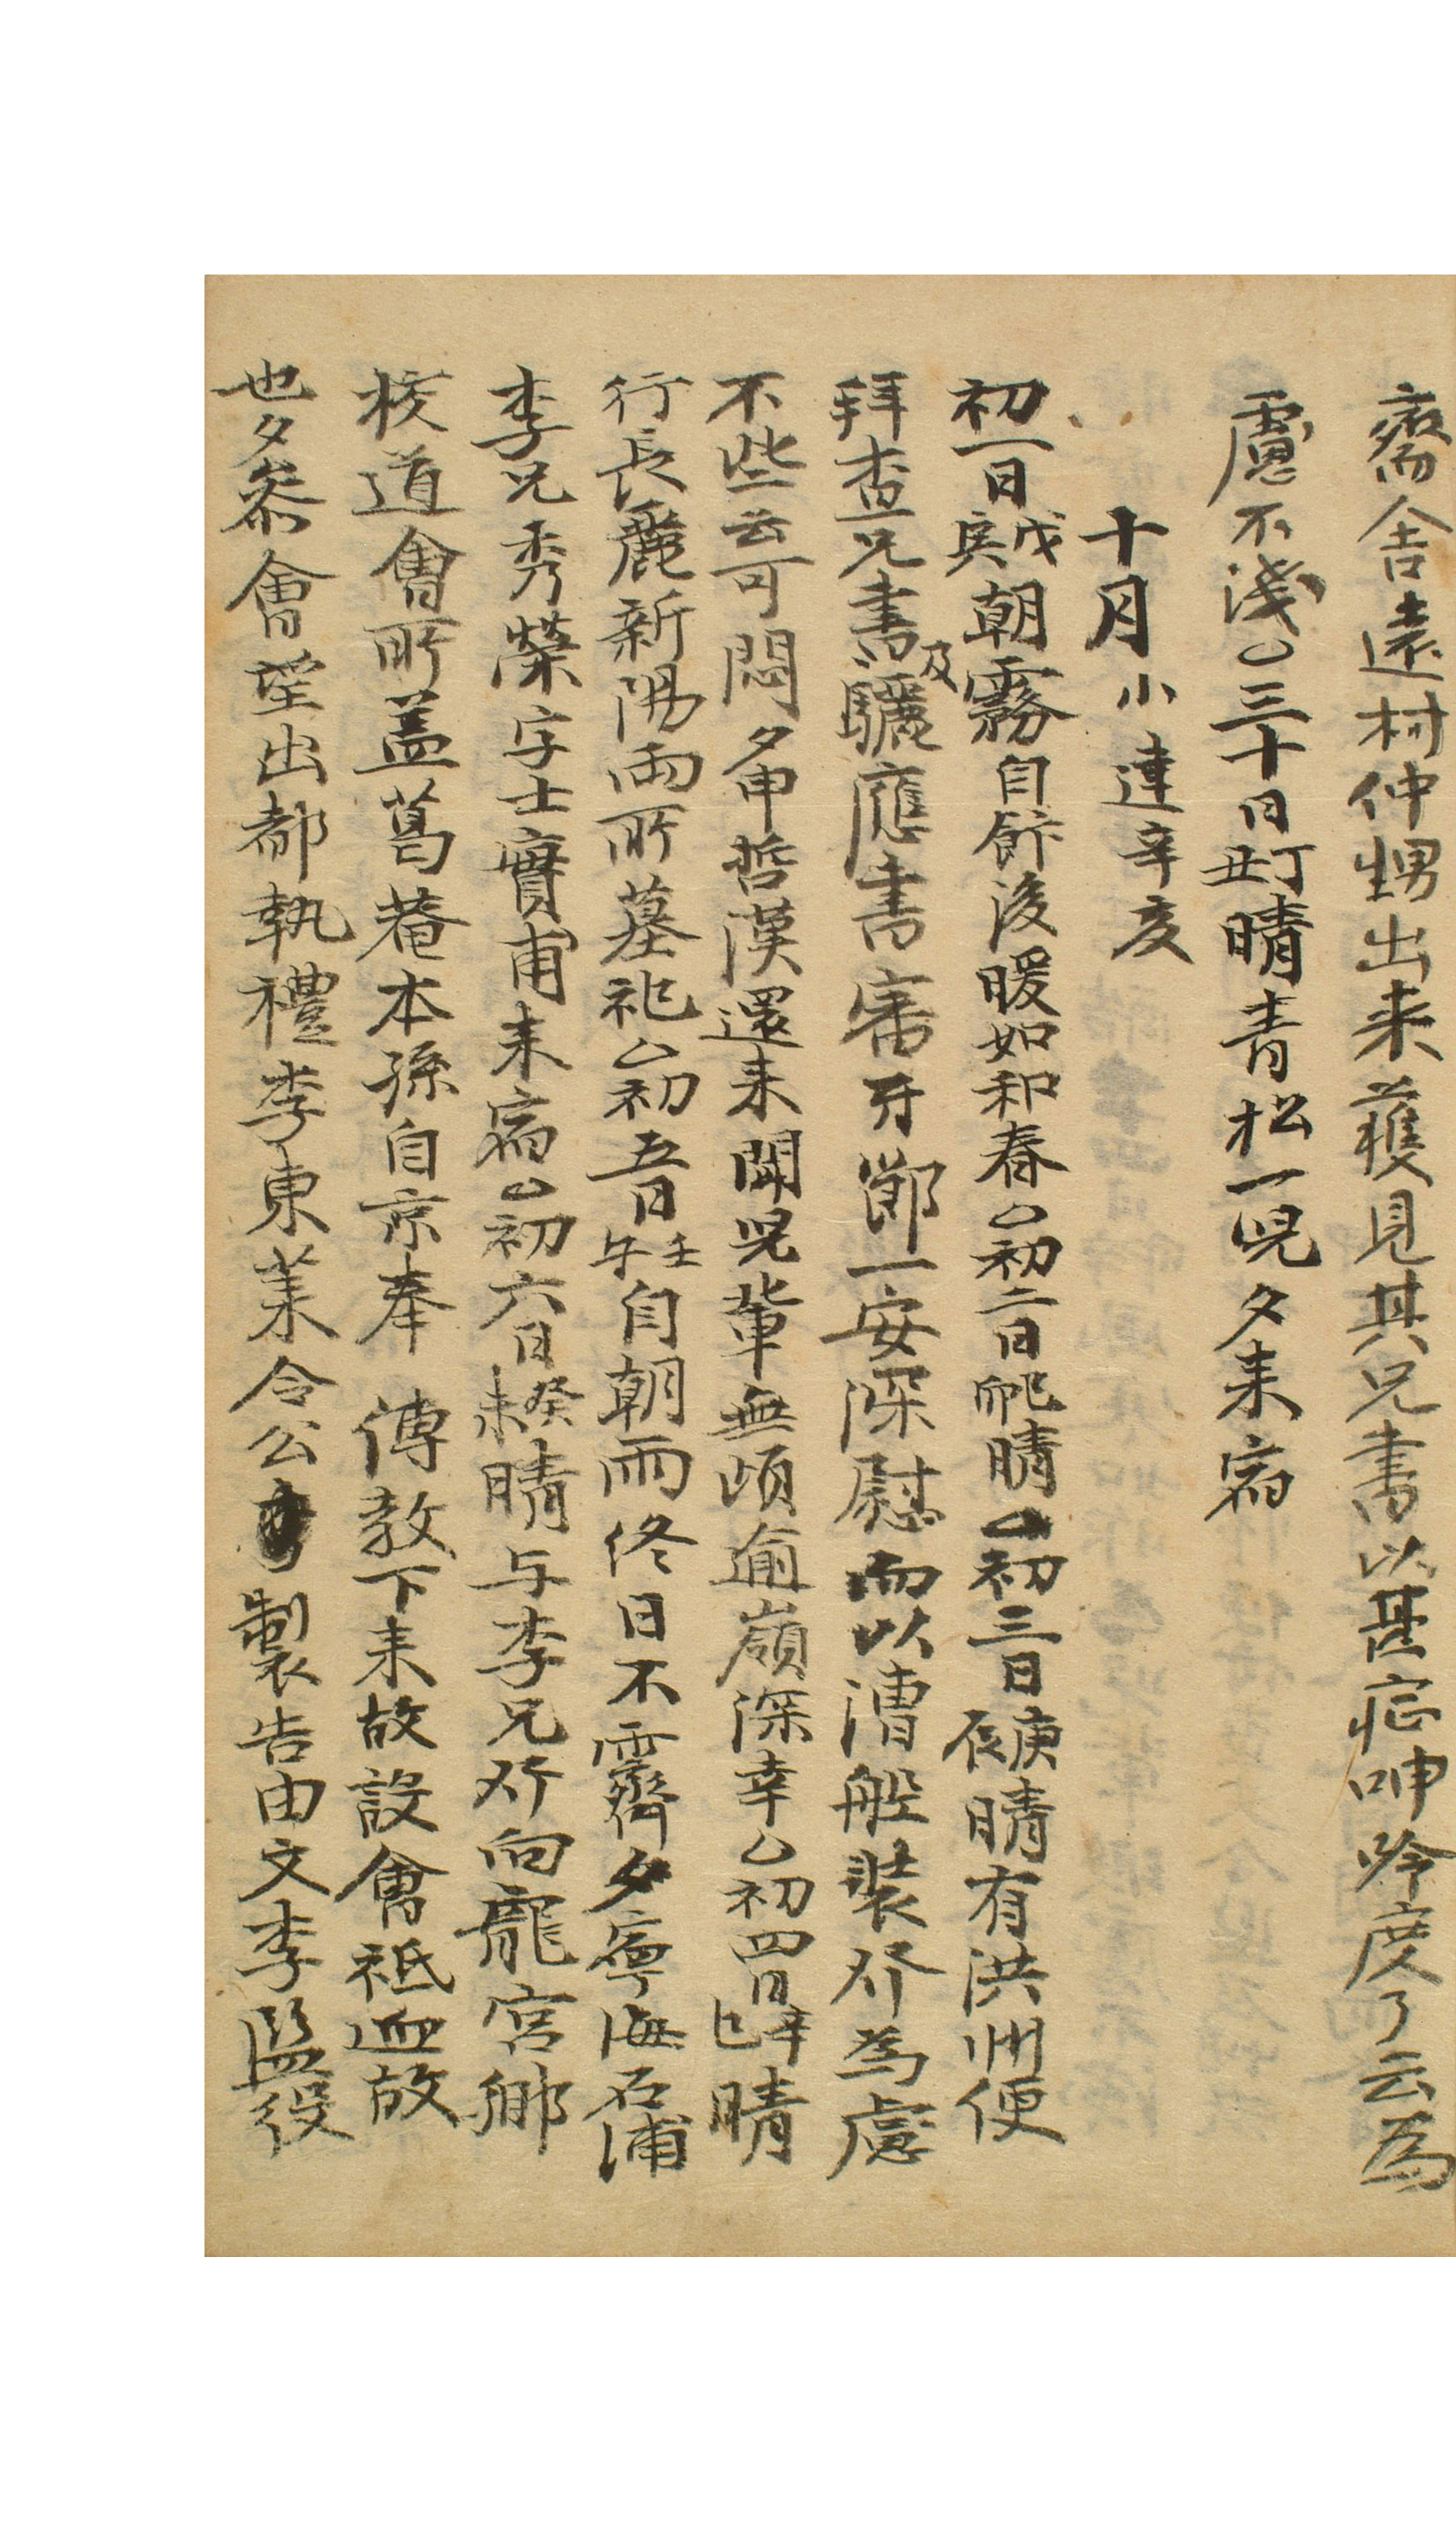 齋舍遠村仲甥出来獲見其兄書以甚症呻吟度了云為
慮不淺○三十日丁丑晴青松一児夕来宿
十月小建辛亥
初一日戊寅朝霧自餘後暖如和春○初二日己卯晴○初三日庚辰晴有洪州便
拜査兄書及驪應書審牙鄕一安深慰而以漕船裝發為慮
不些云可悶夕申哲漢還来聞児輩無頉逾嶺深幸○初四日辛巳晴
行長麗新陽兩所墓祀○初五日壬午自朝雨終日不霽夕寧海石浦
李兄秀榮字士實甫来宿○初六日癸未晴与李兄發向龍宮鄕
校道會所盖葛菴本孫自京奉 傳教下来故設會祗迎故
也夕參會望出都執禮李東萊令公製告由文李監役